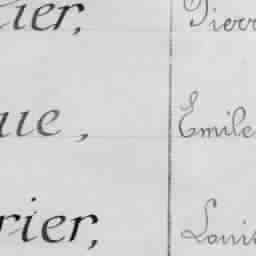 ier, Pierr
ue, Emile
rier, Louis